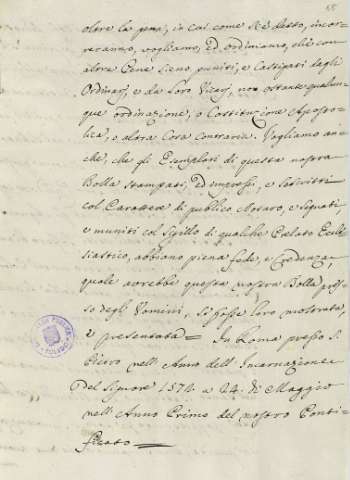 oltre la pena, in cui come si è detto, incor-
reranno, vogliamo, ed ordiniamo, che con
altre Pene sieno puniti, e castigati dagli
Ordinarj, e da loro Vicarj, non ostante qualun-
que ordinazione, o Costituzione Aposto-
lica, o altra Cosa contraria. Vogliamo an-
che, che gli Esemplari di questa nostra
Bolla stampati, ed impressi, e sotscritti
col Carattere di publico Notaro, e segnati,
e muniti col Sigillo di qualche Prelato Eccle-
siastico, abbiano piena fede, e Credenza,
quale avrebbe questa nostra Bolla pres-
so degli Uomini, si fosse loro mostrata,
e presentata = In Roma presso S.
Pietro nell' Anno dell' Incarnazione
Del Signore 1572. a 24. di Maggio
nell' Anno Primo del nostro Ponti-
ficato